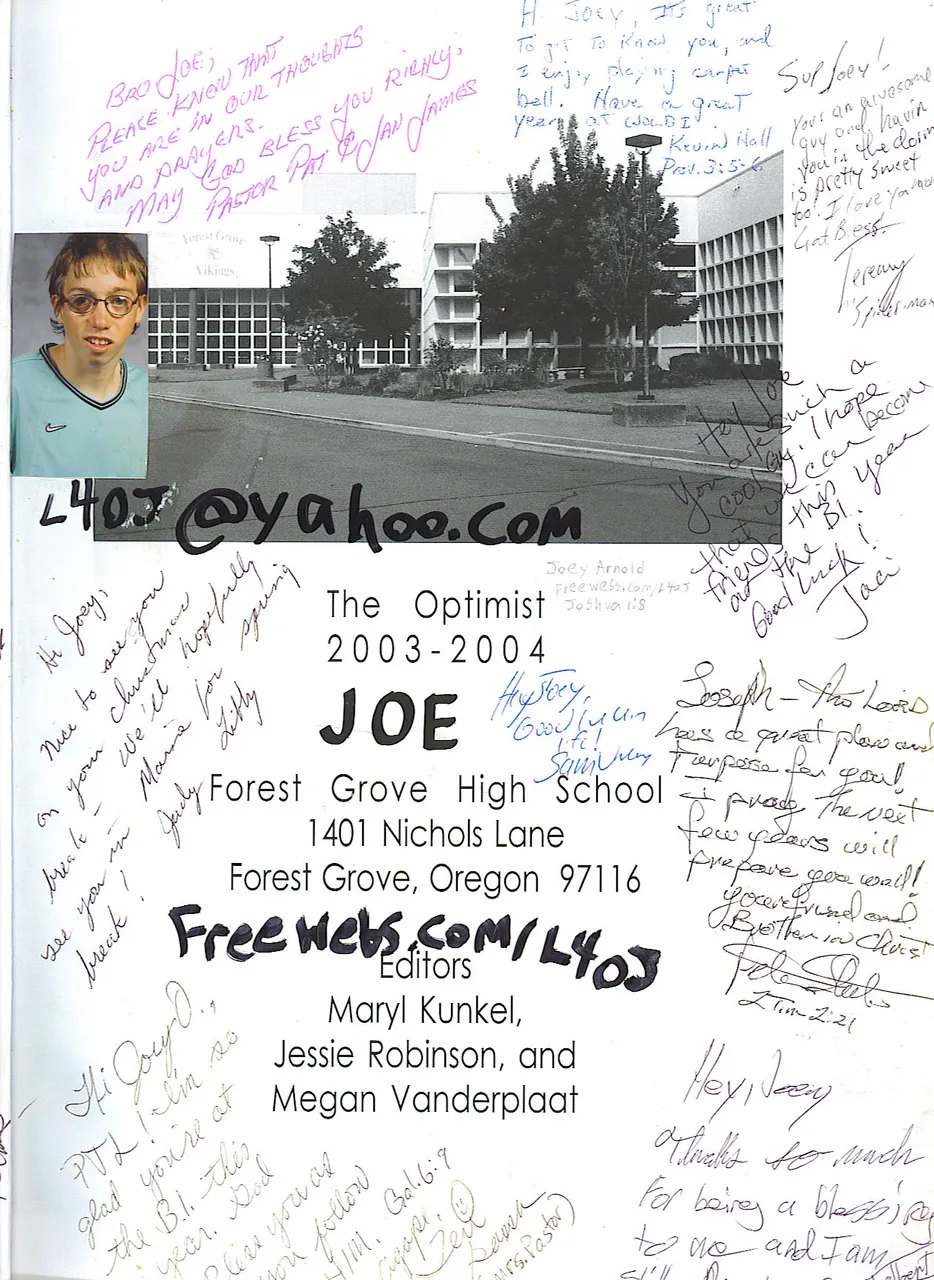 BRO JOE;
PLEASE KNOW THAT
YOU ARE IN OUR THOUGHTS
AND PRAYERS.
MAY GOD BLESS YOU RICHLY,
PASTOR PAT & JAN JAMES
Hi Joey, It's great
to get to know you, and
I enjoy playing carpet
ball. Have a great
year at WOLBI
Kevin Hall
Prov. 3:5-6
Sup Joey!
Your an awesome
guy and havin
you in the dorm
is pretty sweet
too! I love you
Jeremy
Spider-man
Forest Grove
Vikings
Hey Joe
You are such a
cool guy. I hope
that we can become
friends this year
at the BI.
Good luck!
Jaci
L4OJ@yahoo.com
Joey Arnold
Freewebs.com/L4OJ
Joshua 1:8
The Optimist
2003-2004
JOE
Hi Joey,
Nice to see you
on your Christmas
break - We'll hopefully
see you in Maine for spring
break!
Judy Libby
Hey Joey,
Good luck in
life!
Sam
Joseph - The Lord
has a great plan and
Purpose for you!
I pray the next
few years will
prepare you well!
your friend and
Brother in Christ
2 Tim 2:21
Forest Grove High School
1401 Nichols Lane
Forest Grove, Oregon 97116
Freewebs.com/L4OJ
Editors
Maryl Kunkel,
Jessie Robinson, and
Megan Vanderplaat
Hi Joey O.,
PTL! I'm so
glad you're at
the B.I. this
year. God
bless you as
you follow
HIM. Gal. 6:9
agape,
(Mrs. Pastor)
Hey, Joey
Thanks so much
For being a blessing
to me and I am